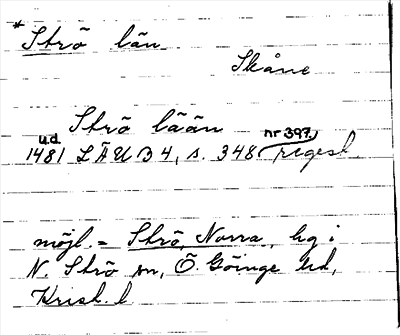 * Strö län
Skåne
Strö lään
u.d. nr 397.)
1481 LÄUB 4, s. 348 (regest
möjl. = Strö, Norra, hg i
N. Strö sn, Ö. Göinge hd,
Krist. l